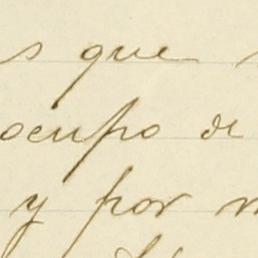 s que
ocupo de
y por